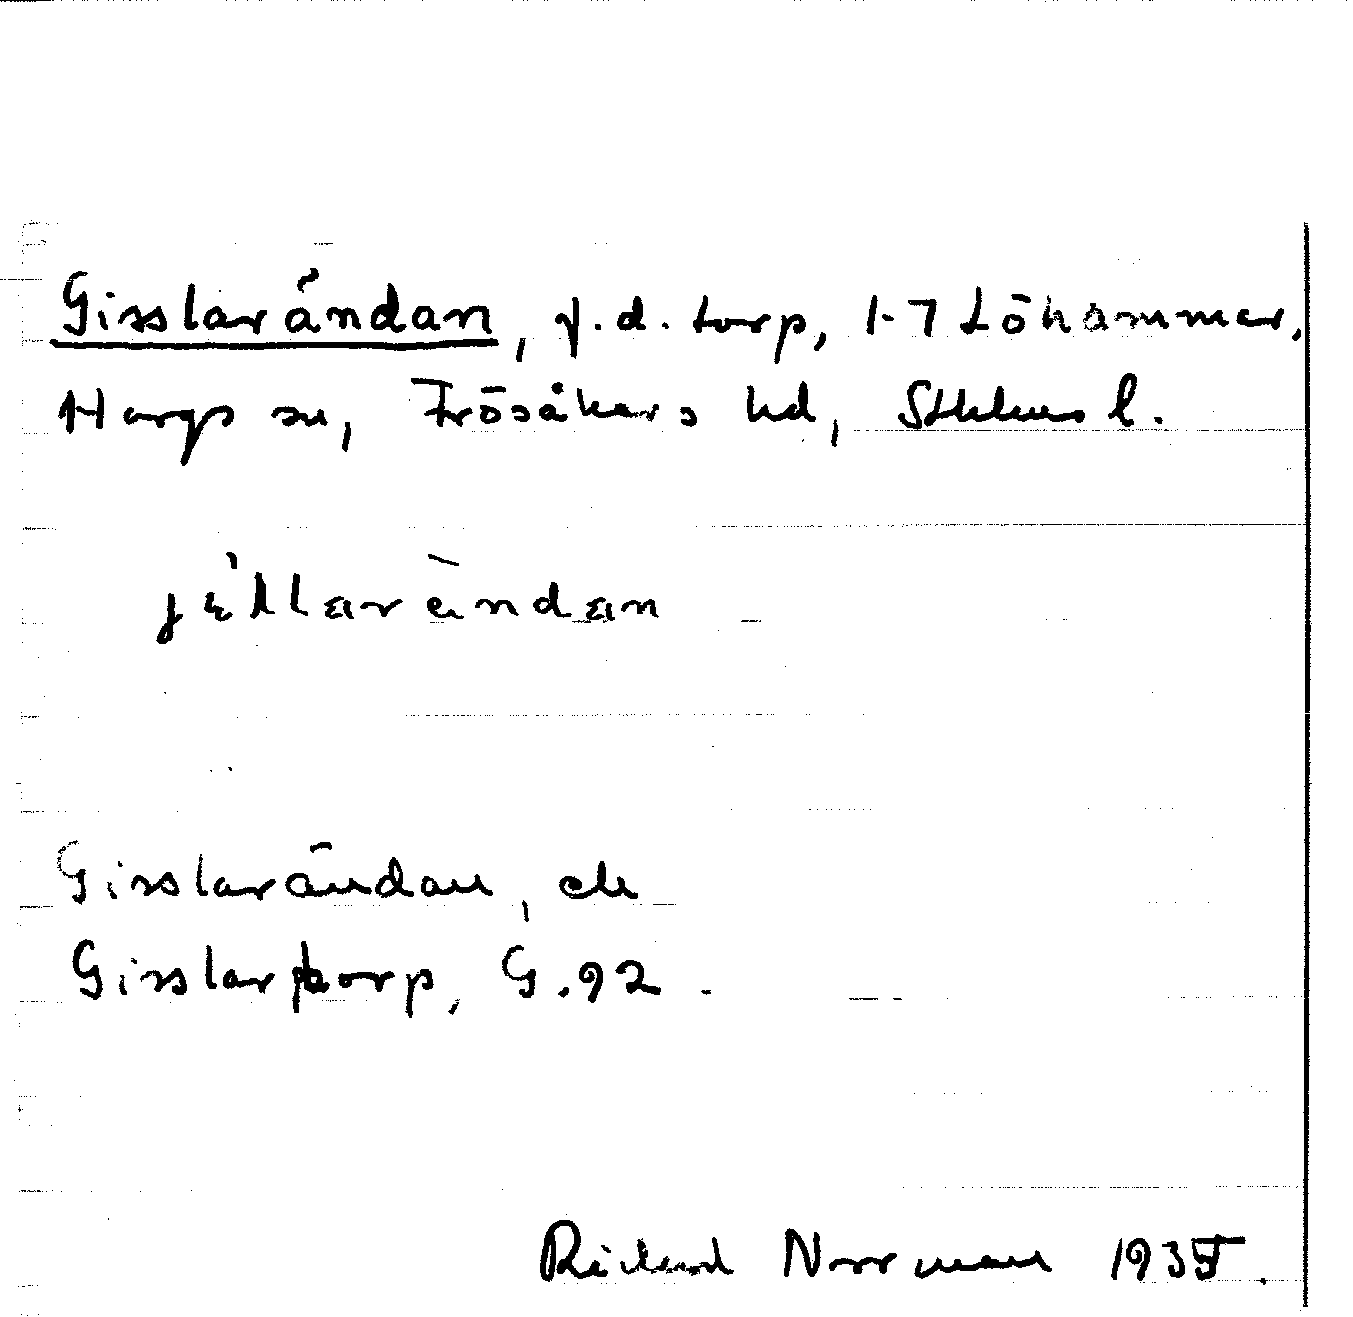 Gisslarändan, f.d. torp, 1-7 Löhammar,
Hargs sn, Frösåkers hd, Sthlms l.
Gisslarändan, elr
Gisslartorp, G.92.
Richard Norrman 1935.